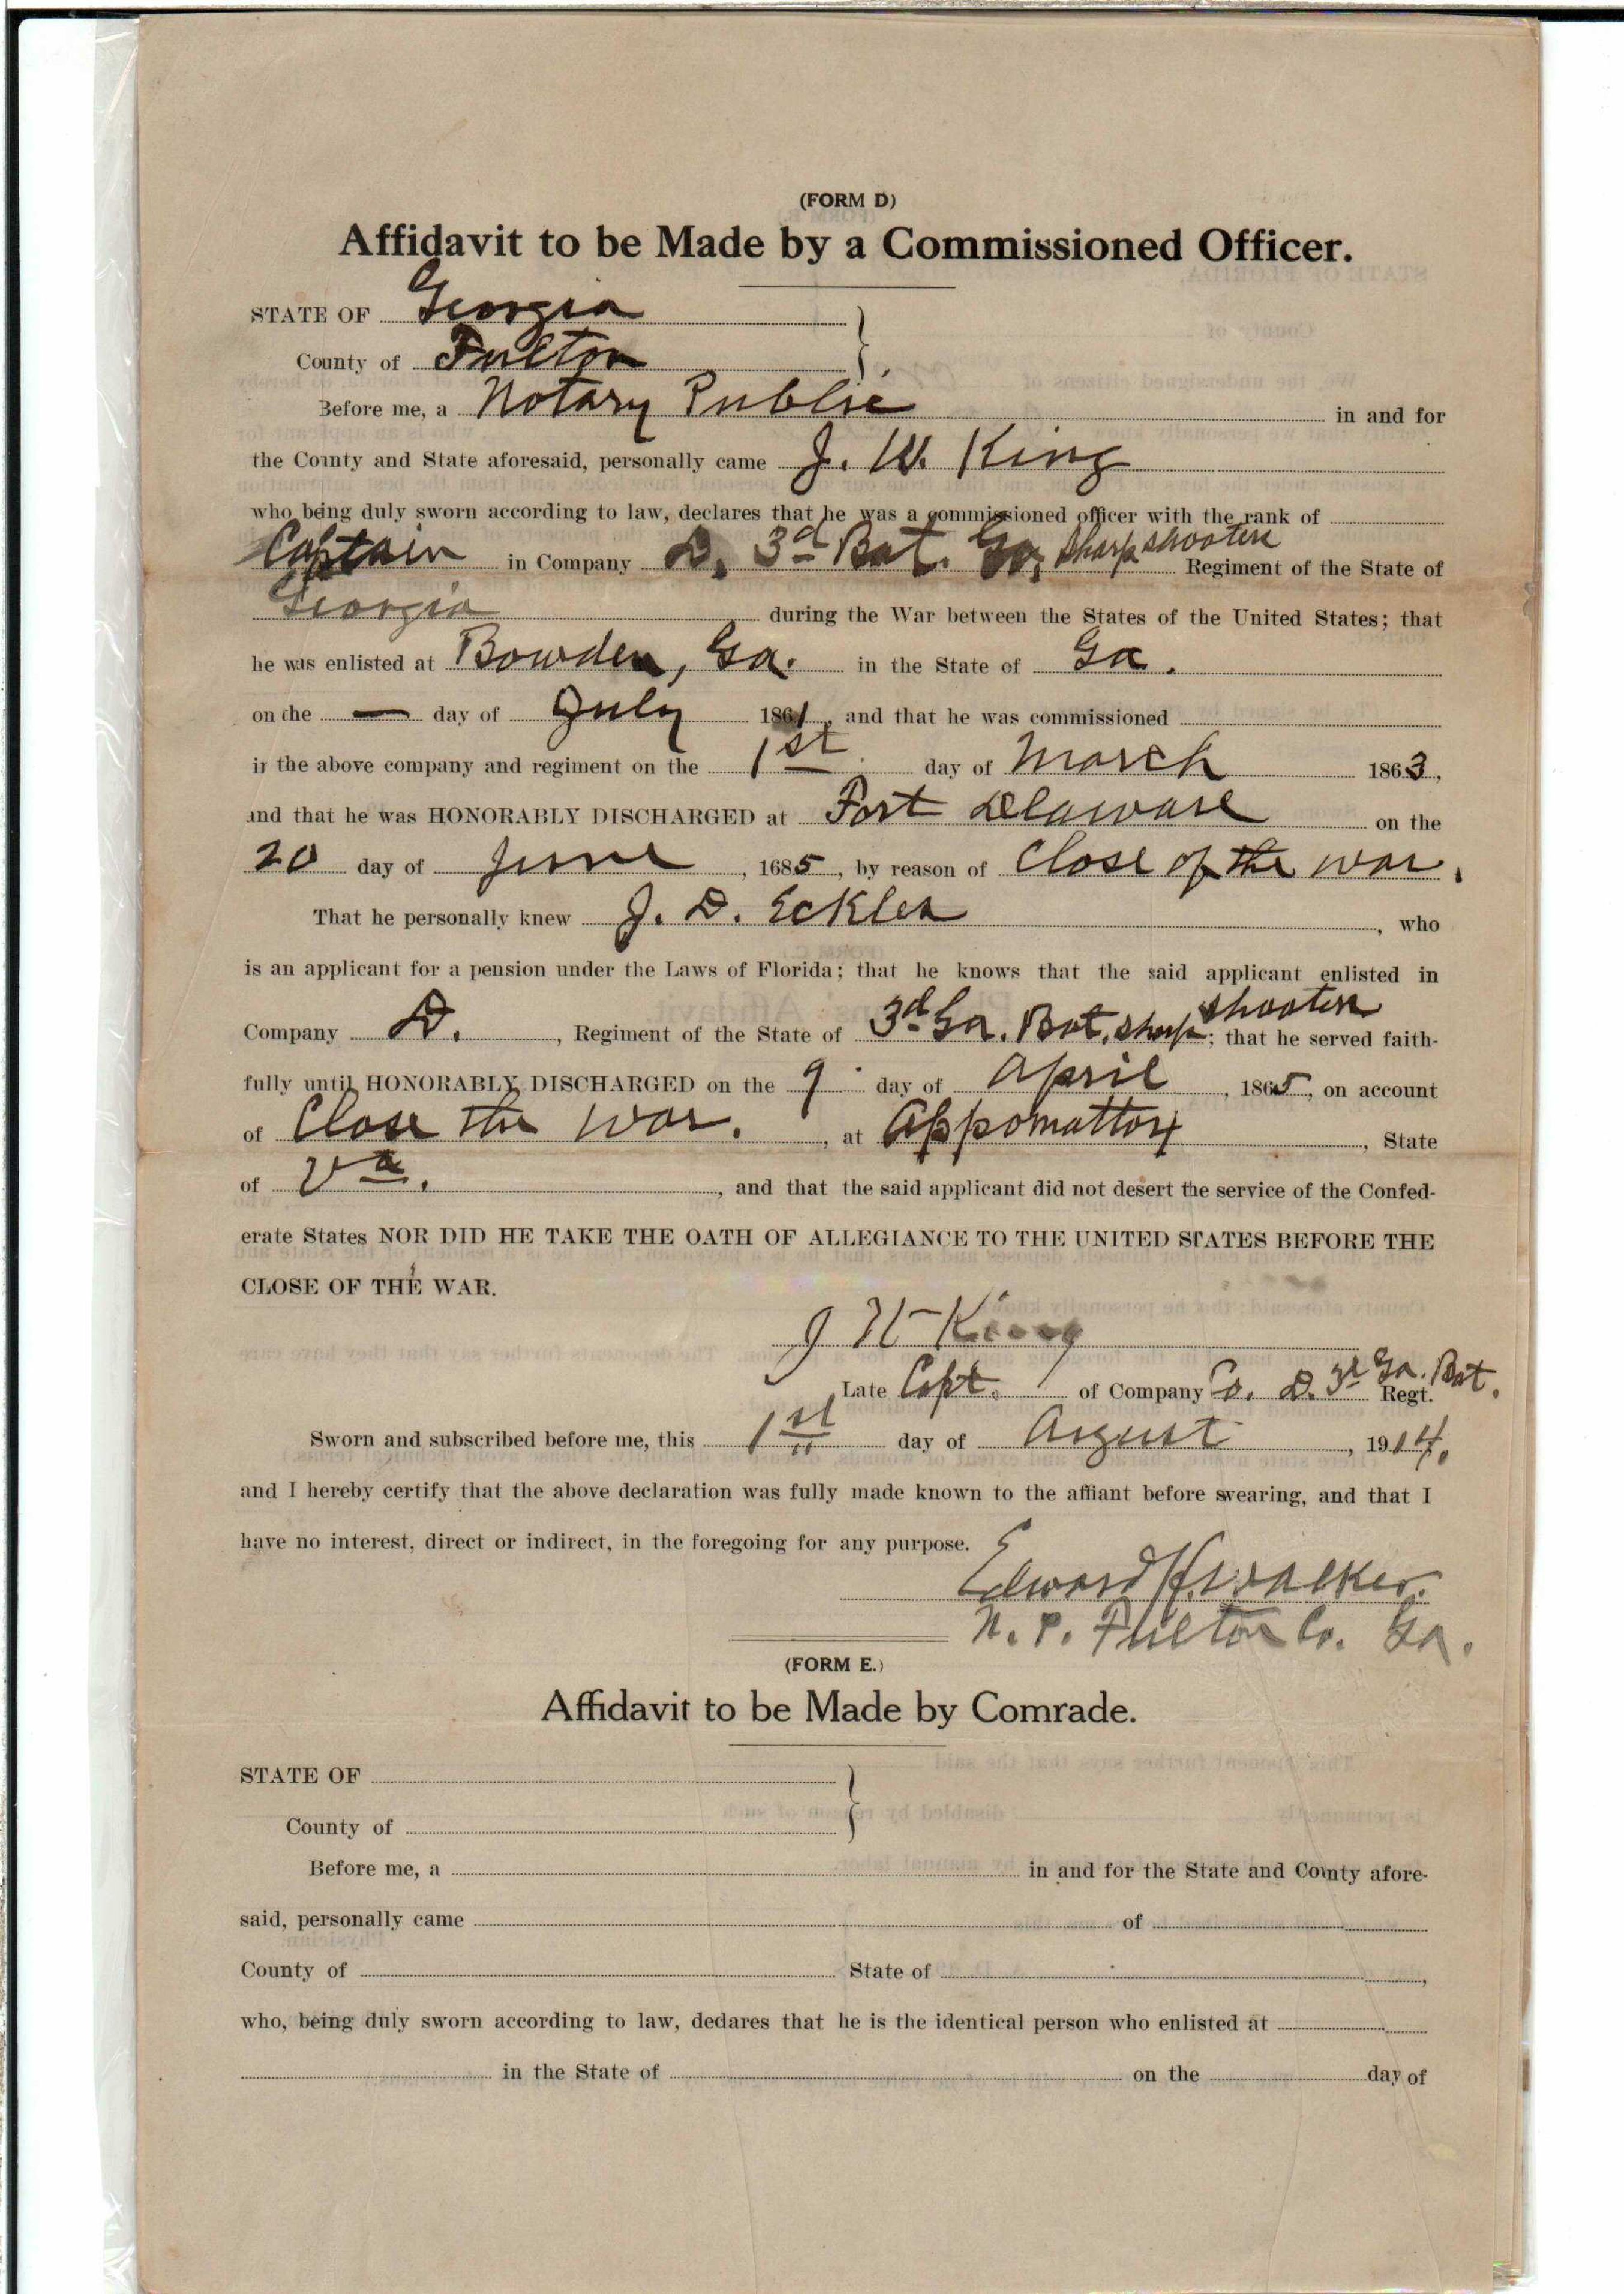 (FORM D)
Affidavit to be Made by a Commissioned Officer.
STATE OF Georgia
County of Fulton
Before me, a Notary Public in and for
the County and State aforesaid, personally came J. W. King
who being duly sworn according to law, declares that he was a commissioned officer with the rank of
Captain in Company D, 3d Bat. Ga, Sharp shooters Regiment of the State of
Georgia during the War between the States of the United States; that
he was enlisted at Bowden, Ga. in the State of Ga.
on the — day of July 1861, and that he was commissioned
in the above company and regiment on the 1st day of March 1863,
and that he was HONORABLY DISCHARGED at Fort Delaware on the
20 day of June, 1685, by reason of Close of the war.
That he personally knew J. D. Eckles, who
is an applicant for a pension under the Laws of Florida; that he knows that the said applicant enlisted in
Company D., Regiment of the State of 3d Ga. Bat. Sharp shooters; that he served faith-
fully until HONORABLY DISCHARGED on the 9 day of April, 1865, on account
of Close the war., at Appomattox, State
of Va., and that the said applicant did not desert the service of the Confed-
erate States NOR DID HE TAKE THE OATH OF ALLEGIANCE TO THE UNITED STATES BEFORE THE
CLOSE OF THE WAR.
J W King
Late Capt. of Company Co. D. 3d Ga. Bat. Regt.
Sworn and subscribed before me, this 1st day of August, 1914.
and I hereby certify that the above declaration was fully made known to the affiant before swearing, and that I
have no interest, direct or indirect, in the foregoing for any purpose.
Edward H. Walker.
N. P. Fulton Co. Ga.
(FORM E.)
Affidavit to be Made by Comrade.
STATE OF
County of
Before me, a in and for the State and County afore-
said, personally came of
County of State of ,
who, being duly sworn according to law, declares that he is the identical person who enlisted at
in the State of on the day of